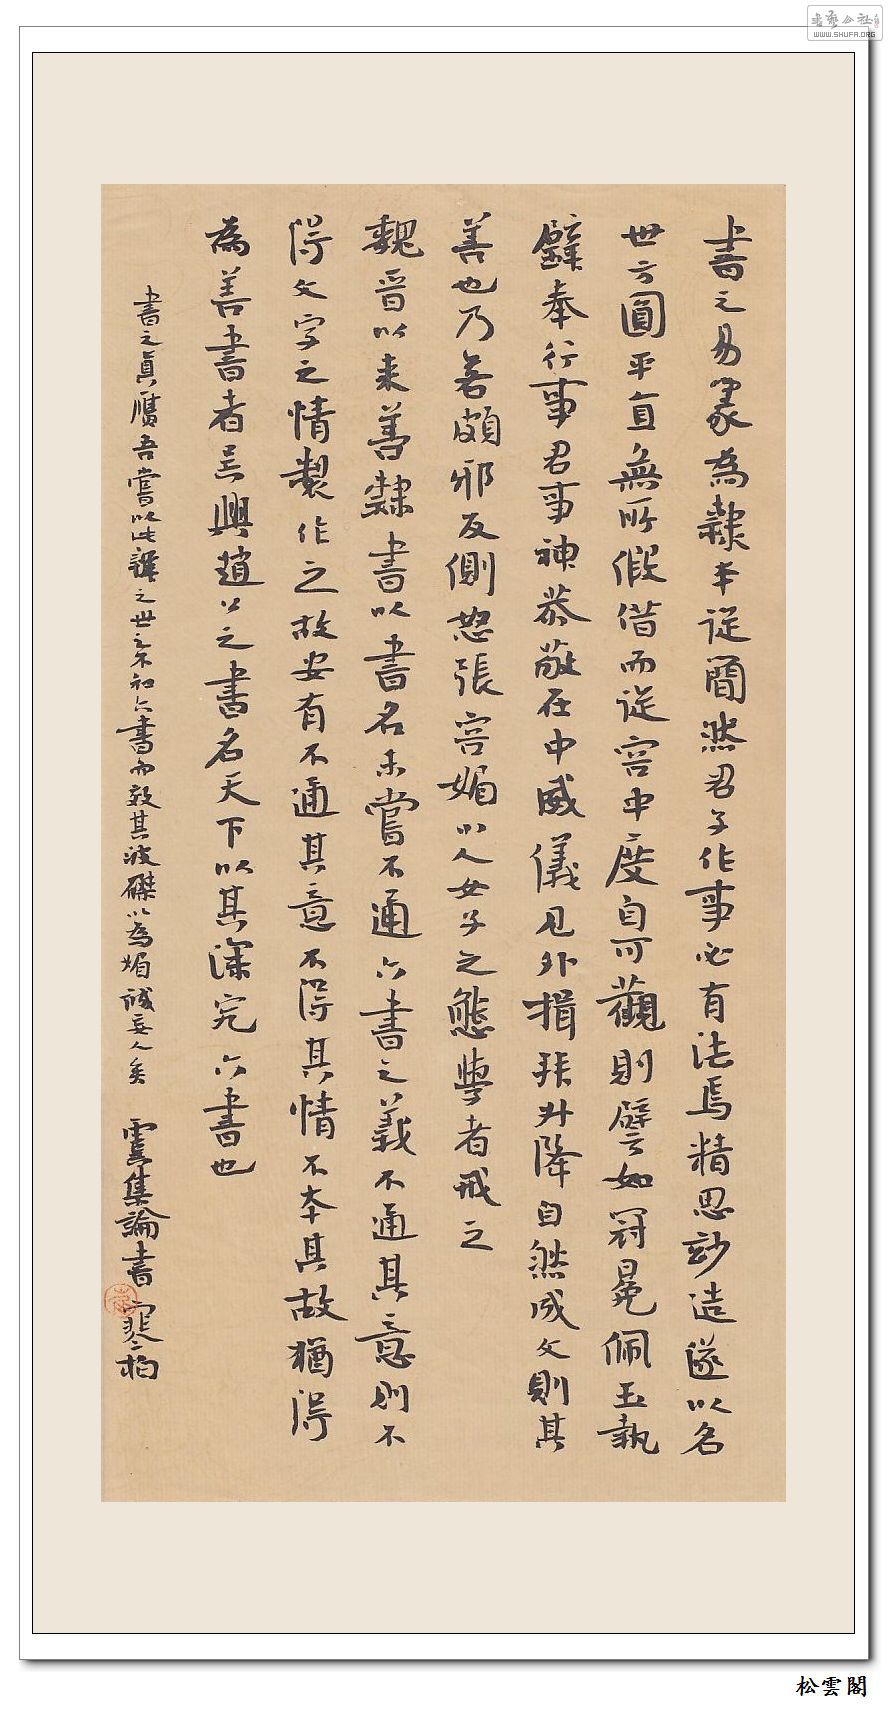 書之易篆為隸本從簡然君子作事必有法焉精思妙造遂以名
世方圓平直無所假借而從容中度自可觀則譬如冠冕佩玉執
璧奉行事君事神恭敬在中威儀見外揖拜升降自然成文則其
善也乃若頗邪反側怒張容媚以人女子之態學者戒之
魏晉以来善隸書以書名未嘗不通六書之義不通其意則不
得文字之情製作之故安有不通其意不得其情不本其故猶得
為善書者吳興趙公之書名天下以其深究六書也
書之真贋吾嘗以此辭之世之不知六書而效其波磔以為媚誠妄人矣 虞集論書
松雲閣
書藝公社
WWW.SHUFA.ORG